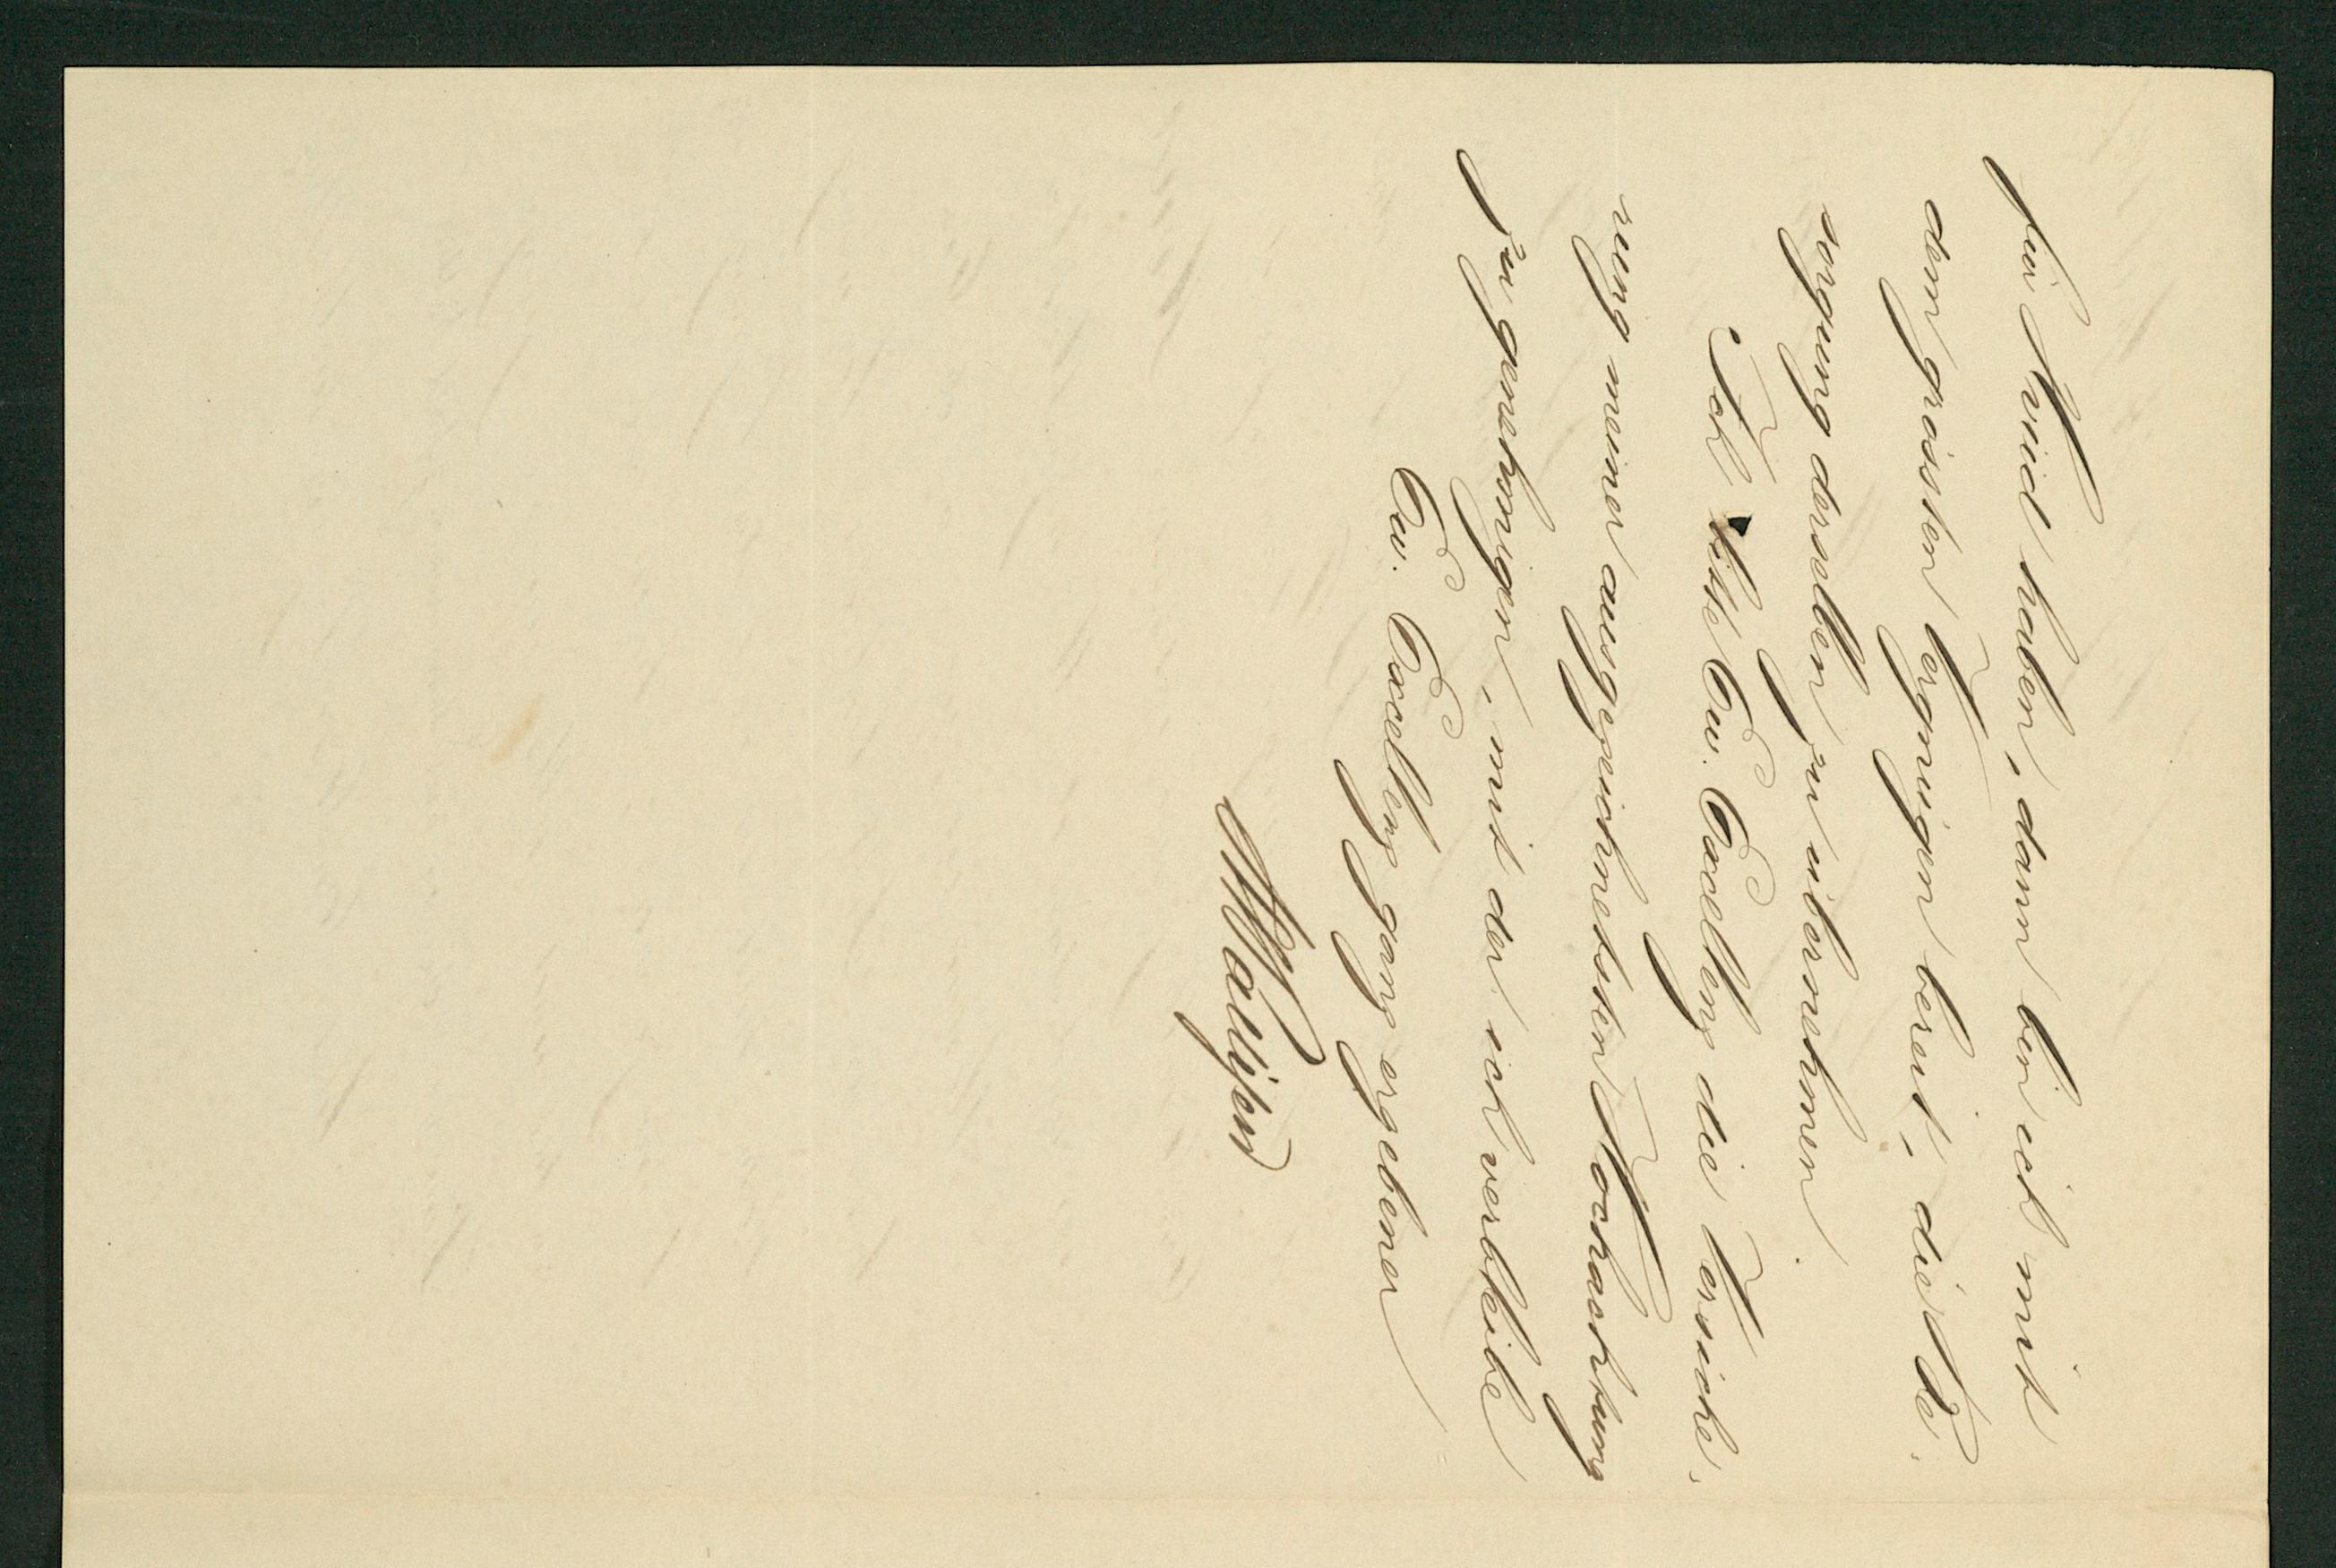 für Arvid haben, dann bin ich mit
dem grössten Vergnügen bereit, die Be-
sorgung derselben zu übernehmen.
Ich bitte Ew. Excellenz die Versiche-
rung meiner ausgezeichnetsten Hochachtung
zu genehmigen, mit der ich verbleibe
Ew. Excellenz ganz ergebener